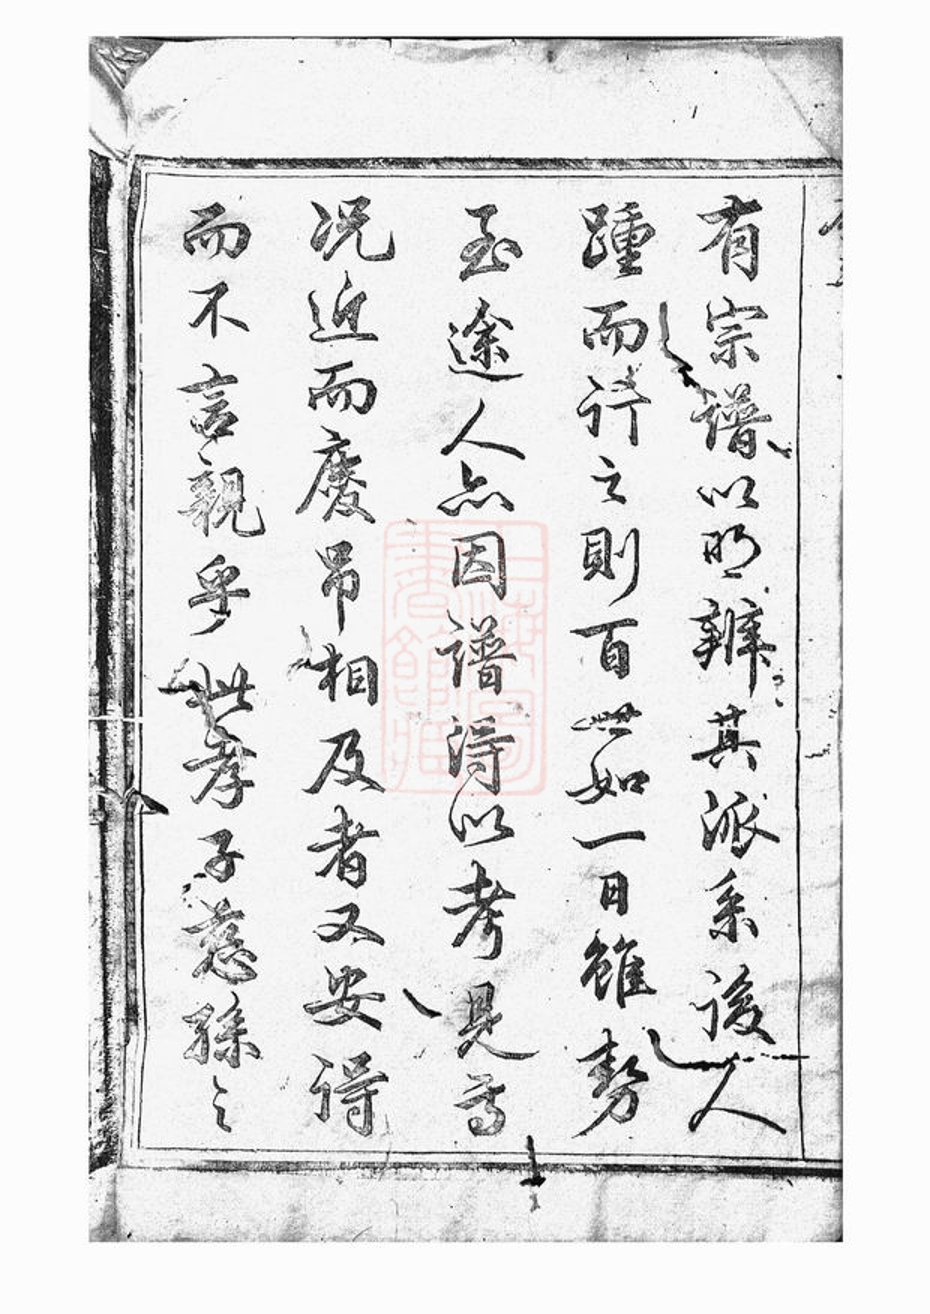 有宗譜以明辨其派系後人
踵而行之則百世如一日雖勢
至途人亦因譜得以考見焉
况近而慶吊相及者又安得
而不言親乎此孝子慈孫之
上海圖書館藏